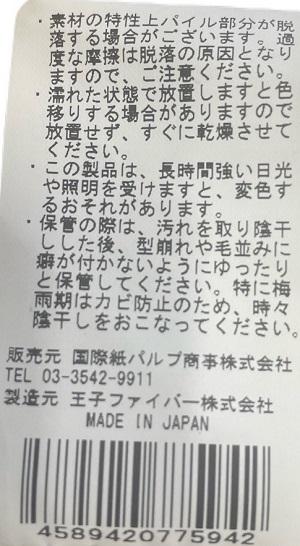 ・素材の特性上パイル部分が脱
落する場合がございます。過
度な摩擦は脱落の原因となり
ますので、ご注意ください。
・濡れた状態で放置しますと色
移りする場合がありますので
放置せず、すぐに乾燥させて
ください。
・この製品は、長時間強い日光
や照明を受けますと、変色す
るおそれがあります。
・保管の際は、汚れを取り陰干
しした後、型崩れや毛並みに
癖が付かないようにゆったり
と保管してください。特に梅
雨期はカビ防止のため、時々
陰干しをおこなってください。
販売元 国際紙パルプ商事株式会社
TEL 03-3542-9911
製造元 王子ファイバー株式会社
MADE IN JAPAN
4589420775942